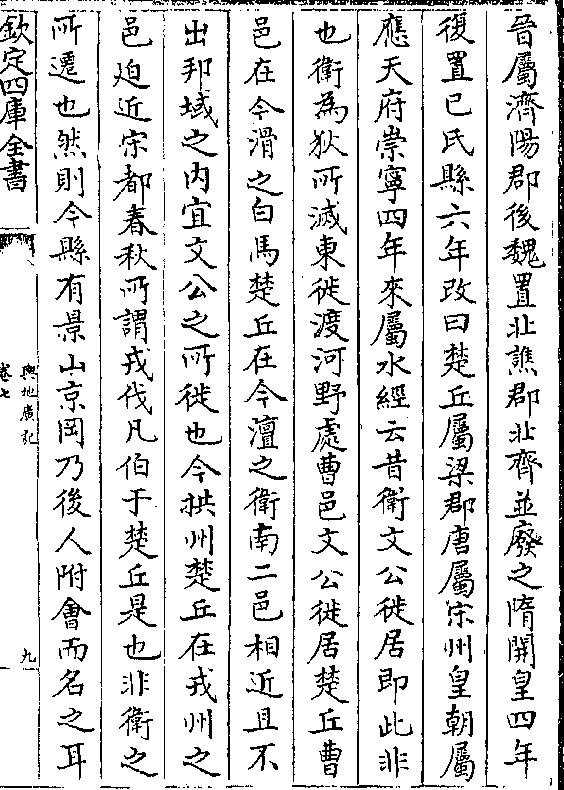 晉屬濟陽郡後魏置北譙郡北齊並廢之隋開皇四年
復置已氏縣六年改曰楚丘屬梁郡唐屬宋州皇朝屬
應天府崇寧四年來屬水經云昔衛文公徙居即此非
也衛為狄所滅東徙渡河野處曹邑文公徙居楚丘曹
邑在今滑之白馬楚丘在今澶之衛南二邑相近且不
出邦域之内宜文公之所徙也今拱州楚丘在戎州之
邑迫近宋都春秋所謂戎伐凡伯于楚丘是也非衛之
所遷也然則今縣有景山京岡乃後人附會而名之耳
欽定四庫全書
輿地廣記
卷七
九